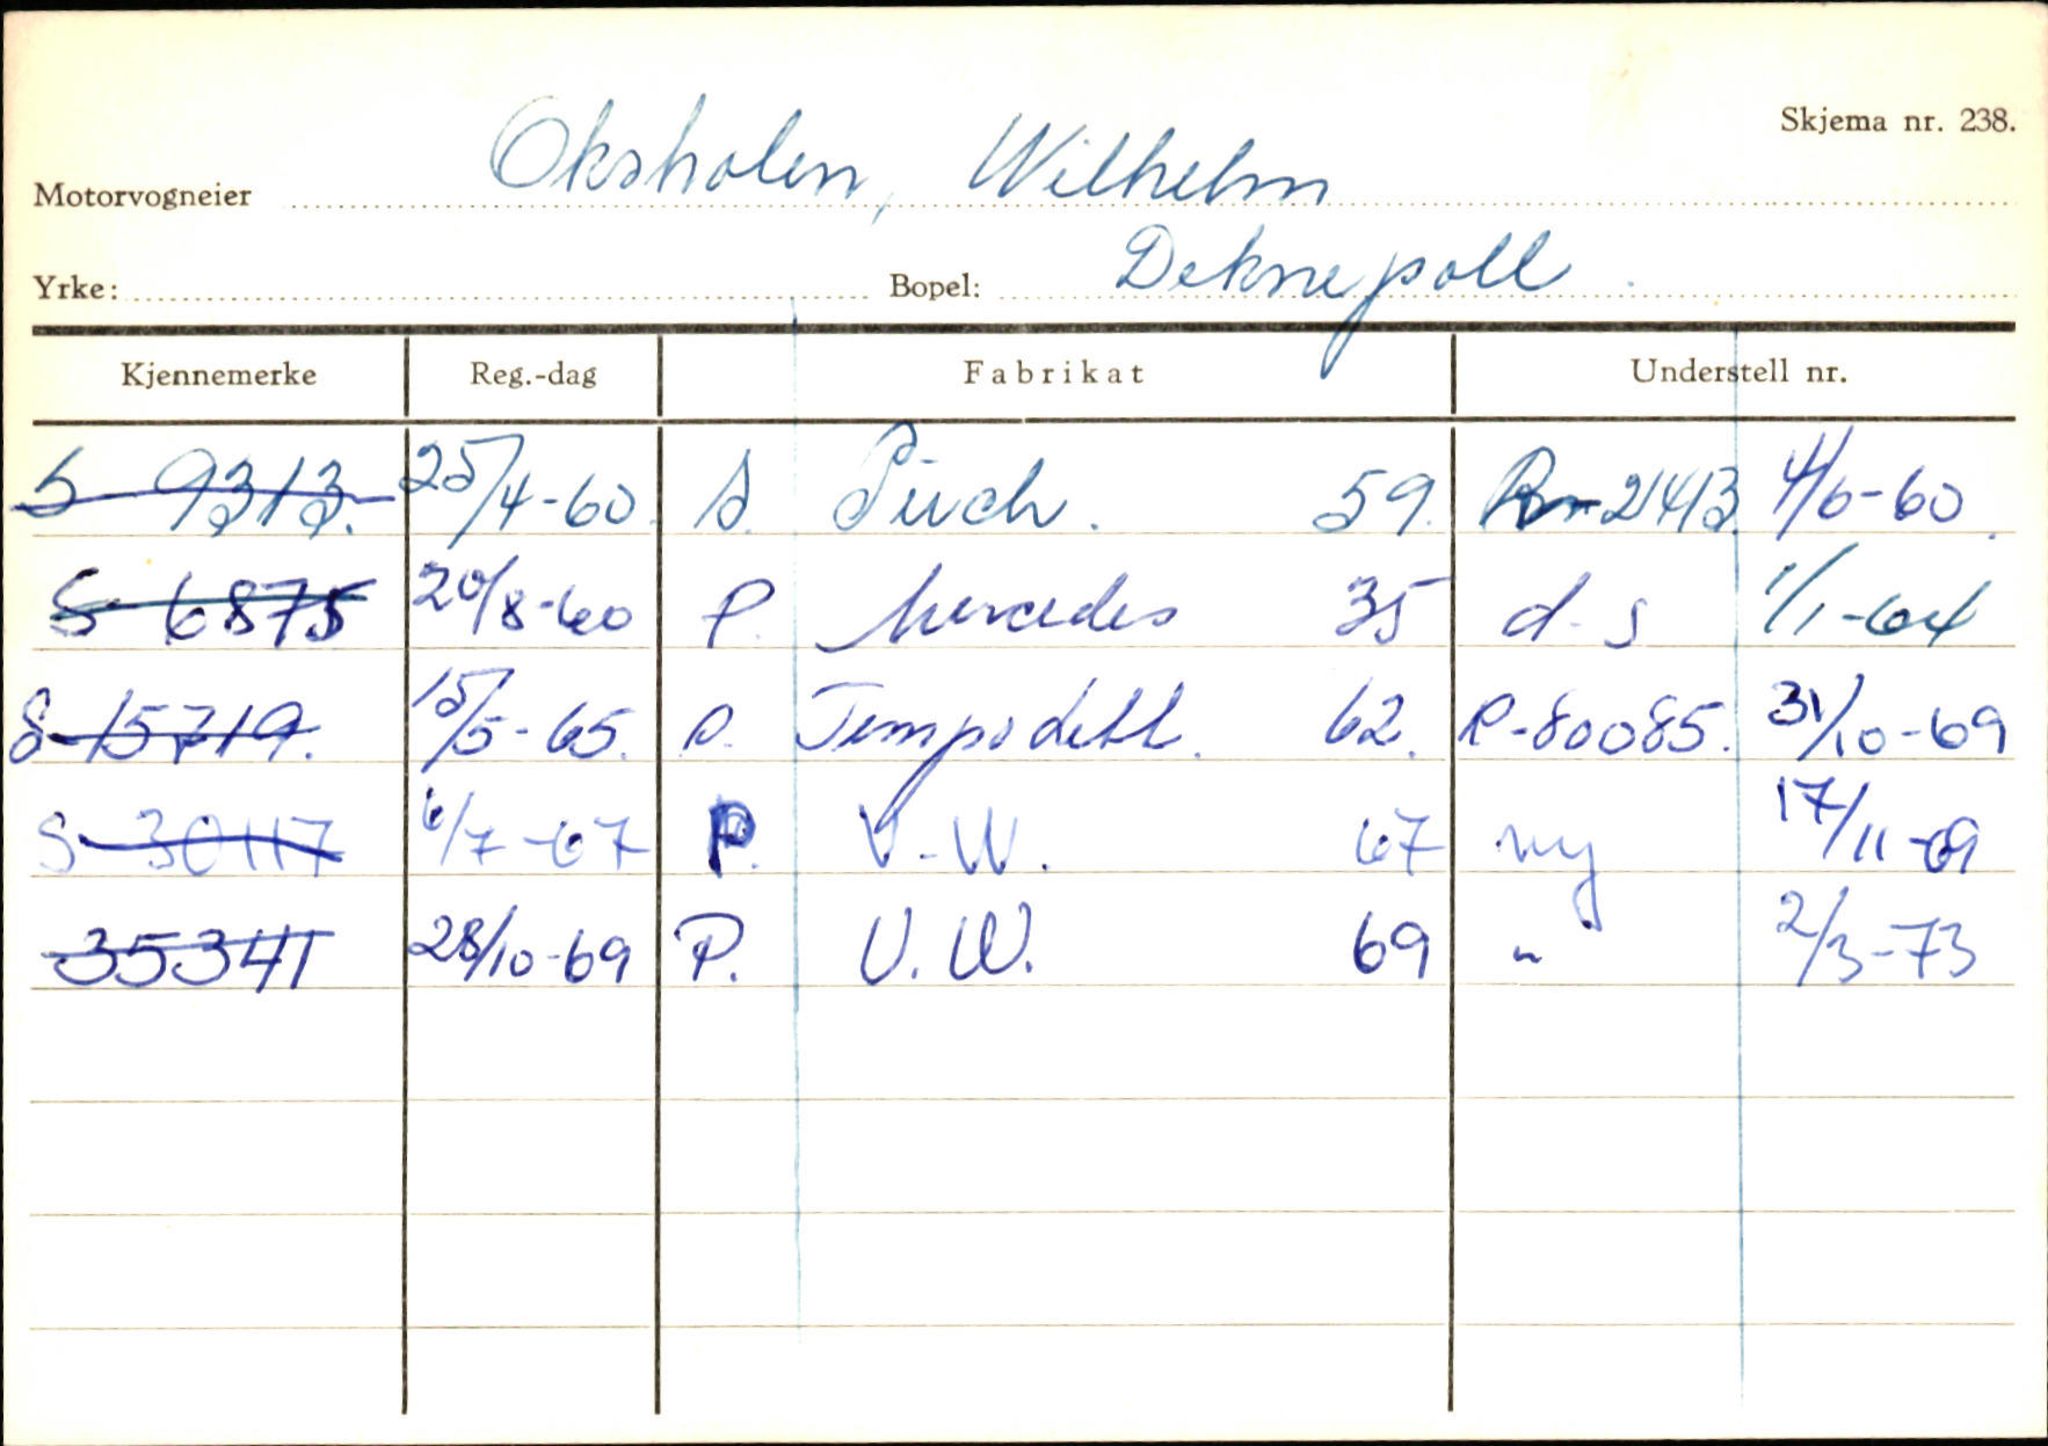 Skjema nr. 238.
Motorvogneier Oksholen, Wilhelm
Yrke: Bopel: Deknepoll
Kjennemerke Reg.-dag Fabrikat Understell nr.
S-9313. 25/4-60. S. Püch. 59. 2413. 4/6-60.
S-6875 20/8-60 P. Mercedes 35 d-s 1/1-64
S-15719. 15/5-65. S. Tempo Lett. 62. R-80085. 31/10-69
S-30117 6/7-67 P. V.W. 67 ny 17/11-69
35341 28/10-69 P. V.W. 69 " 2/3-73